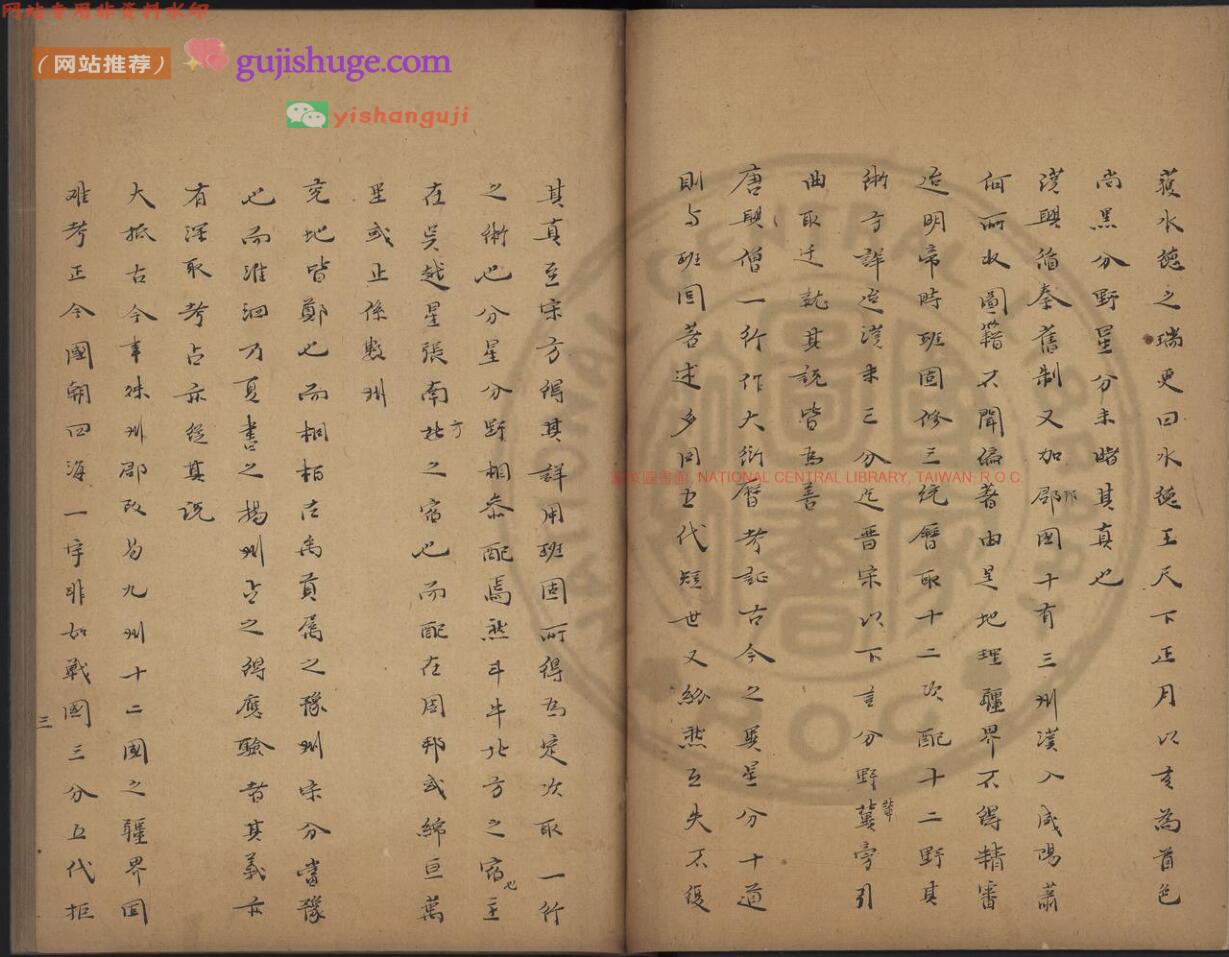 网站专用非资料水印
（网站推荐）
gujishuge.com
yishanguji
NATIONAL CENTRAL LIBRARY, TAIWAN, R.O.C
獲水德之瑞更曰水德王天下正月以亥為首色
尚黑分野星分未暏其真也
漢興循秦舊制又加郡國十有三州漢入咸陽蕭
何所收圖籍不聞徧著由是地理疆界不得精審
迨明帝時班固修三統曆取十二次配十二野其
術方詳迨漢末三分迄晋宋以下言分野冀輩旁引
曲取迁就其説皆為善
唐興僧一行作大衍曆考証古今之異星分十道
則与班固苦述多同五代短世又紛然互失不復
其真至宋方得其詳用班固所得為定次取一行
之術也分星分野相叅配焉然斗牛北方之宿也主
在吳越星張南北方之宿也而配在周邦或綿亘萬
里或止係数州
兖地皆鄭也而桐柏在禹貢属之豫州宋分當豫
也而淮泗乃夏書之揚州占之得應驗者其義亦
有深取考占亦從其説
大抵古今事殊州郡改為九州十二國之疆界固
难考正今國朝四海一宇非如戰國三分五代拒
三